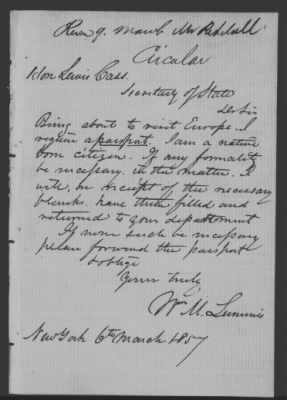 Recd 9. March Mr Reddall
Circular
Hon Lewis Cass.
Secretary of State
Dr Sir
Being about to visit Europe. I
require a passport. I am a native
born citizen. If any formality
be necessary in the matter. I
will, on receipt of the necessary
blanks. have them filled and
returned to your department
If none such be necessary
please forward the passport
& oblige
Yours truly
Wm M. Lummis
New York 6th March 1857